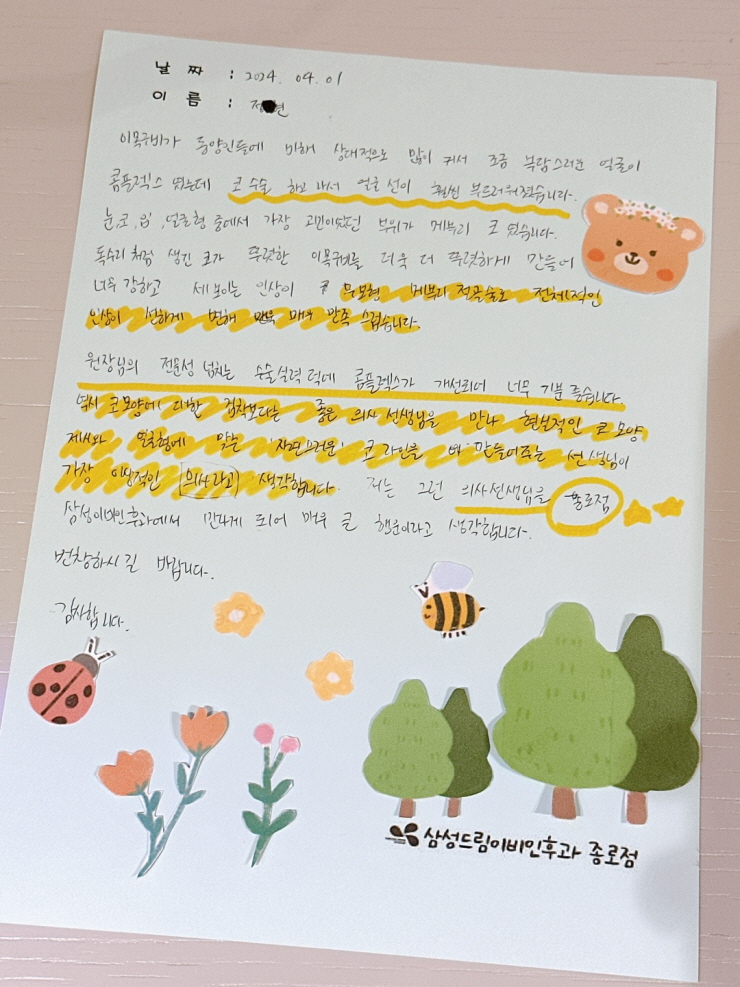 날 짜 : 2024. 04. 01
이 름 : 연
이목구비가 동양인들에 비해 상대적으로 많이 커서 조금 부담스러운 얼굴이
콤플렉스 였는데 코 수술 하고 나서 얼굴 선이 훨씬 부드러워졌습니다.
눈, 코, 입, 얼굴형 중에서 가장 고민이었던 부위가 메부리 코 였습니다.
독수리 처럼 생긴 코가 뚜렷한 이목구비를 더욱 더 뚜렷하게 만들어
너무 강하고 세 보이는 인상이 무보형 메부리 절골술로 전체적인
인상이 선하게 변해 매우 만족 스럽습니다.
원장님의 전문성 넘치는 수술실력 덕에 콤플렉스가 개선되어 너무 기분 좋습니다
역시 코모양에 대한 집착보다는 좋은 의사 선생님을 만나 현실적인 코 모양
제시와 얼굴형에 맞는 '자연스러운' 코 라인을 만들어주는 선생님이
가장 이상적인 의사라고 생각합니다. 저는 그런 의사선생님을 종로점
삼성이비인후과에서 만나게 되어 매우 큰 행운이라고 생각합니다.
번창하시길 바랍니다.
감사합니다.
삼성드림이비인후과 종로점